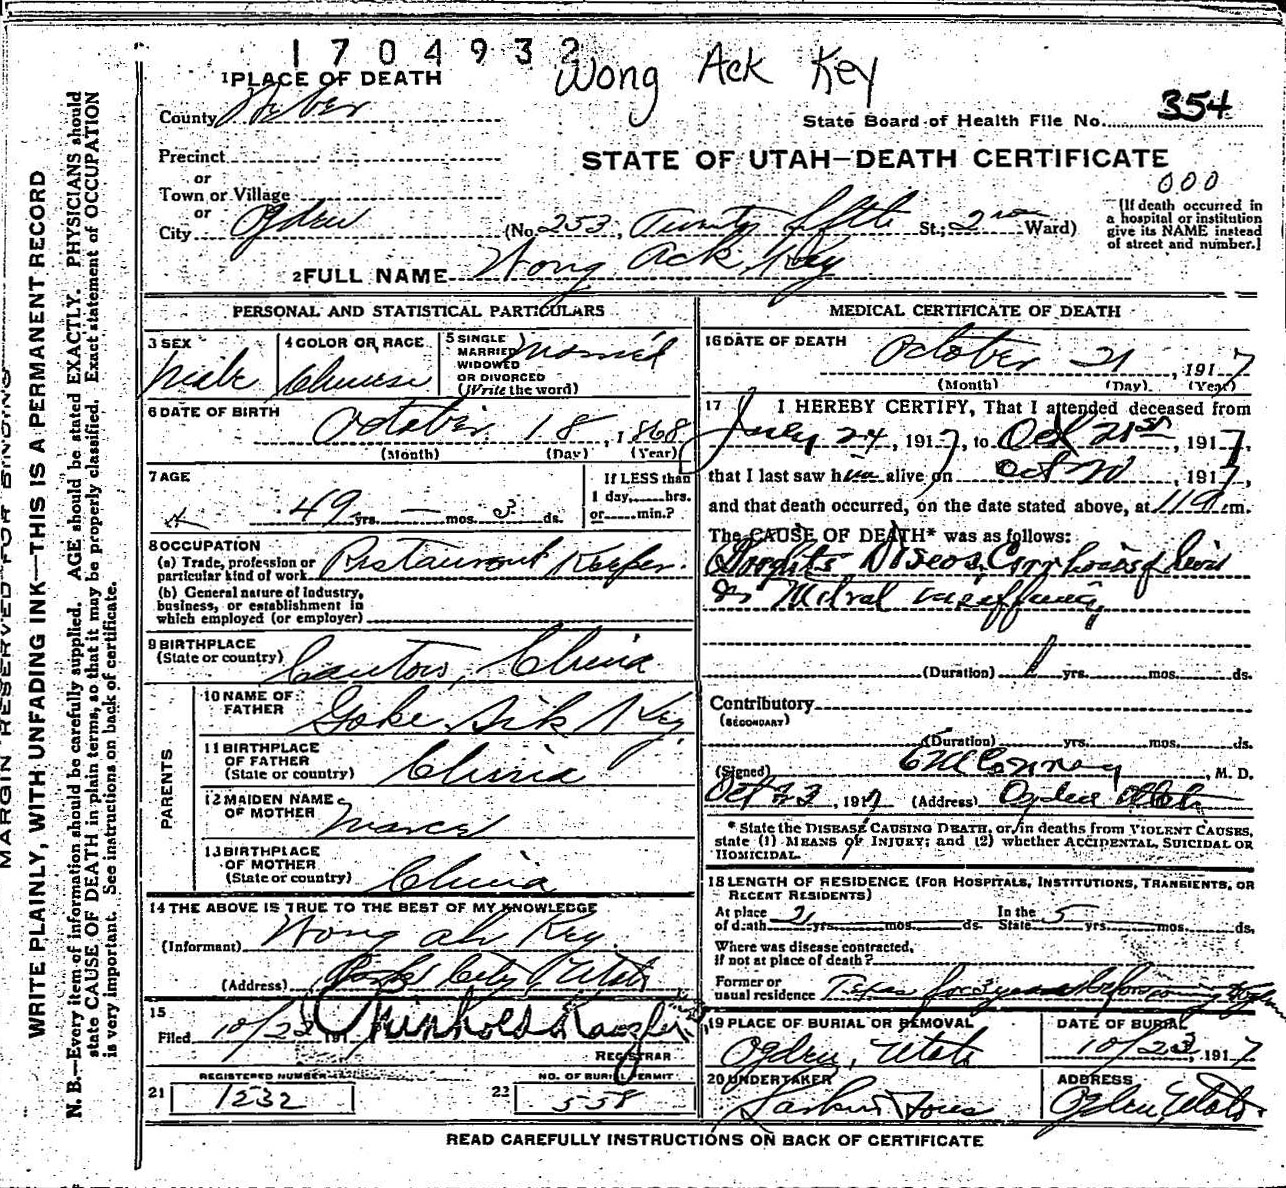 1704932
Wong Ack Key
1 PLACE OF DEATH
County Weber
State Board of Health File No. 354
Precinct
or
Town or Village
or
City Ogden
STATE OF UTAH—DEATH CERTIFICATE
000
(No. 253, Twenty fifth St.; 2nd Ward)
(If death occurred in
a hospital or institution
give its NAME instead
of street and number.]
2 FULL NAME Wong Ack Key
MARGIN RESERVED FOR BINDING
WRITE PLAINLY, WITH UNFADING INK—THIS IS A PERMANENT RECORD
N. B.—Every item of information should be carefully supplied. AGE should be stated EXACTLY. PHYSICIANS should
state CAUSE OF DEATH in plain terms, so that it may be properly classified. Exact statement of OCCUPATION
is very important. See instructions on back of certificate.
PERSONAL AND STATISTICAL PARTICULARS
3 SEX
Male
4 COLOR OR RACE
Chinese
5 SINGLE
MARRIED
WIDOWED
OR DIVORCED
(Write the word)
Married
6 DATE OF BIRTH
October 18, 1868
(Month) (Day) (Year)
7 AGE
49 yrs. — mos. 3 ds.
If LESS than
1 day, hrs.
or min.?
8 OCCUPATION
(a) Trade, profession or
particular kind of work Restaurant Keeper.
(b) General nature of industry,
business, or establishment in
which employed (or employer)
9 BIRTHPLACE
(State or country) Canton, China
PARENTS
10 NAME OF
FATHER Key
11 BIRTHPLACE
OF FATHER
(State or country) China
12 MAIDEN NAME
OF MOTHER
13 BIRTHPLACE
OF MOTHER
(State or country) China
14 THE ABOVE IS TRUE TO THE BEST OF MY KNOWLEDGE
(Informant) Wong Key
(Address) Park City, Utah
15
Filed 10/23 191
REGISTRAR
REGISTERED NUMBER
21 1232
NO. OF BURIAL PERMIT
22 558
MEDICAL CERTIFICATE OF DEATH
16 DATE OF DEATH
October 21, 1917
(Month) (Day) (Year)
17 I HEREBY CERTIFY, That I attended deceased from
July 24, 1917, to Oct 21st, 1917,
that I last saw him alive on Oct 20, 1917,
and that death occurred, on the date stated above, at m.
The CAUSE OF DEATH* was as follows:
Brights Diseas, Cirrhosis of liver
& Mitral insufficiency
(Duration) 1 yrs. mos. ds.
Contributory
(SECONDARY)
(Duration) yrs. mos. ds.
(Signed) , M. D.
Oct 23, 1917 (Address) Ogden Utah
* State the DISEASE CAUSING DEATH, or, in deaths from VIOLENT CAUSES,
state (1) MEANS OF INJURY; and (2) whether ACCIDENTAL, SUICIDAL OR
HOMICIDAL.
18 LENGTH OF RESIDENCE (FOR HOSPITALS, INSTITUTIONS, TRANSIENTS, OR
RECENT RESIDENTS)
At place
of death yrs. mos. ds.
In the
State 5 yrs. mos. ds.
Where was disease contracted,
if not at place of death?
Former or
usual residence Texas for 3 years before coming
19 PLACE OF BURIAL OR REMOVAL
Ogden, Utah
DATE OF BURIAL
10/23 1917
20 UNDERTAKER
Larkin & Sons
ADDRESS
Ogden Utah
READ CAREFULLY INSTRUCTIONS ON BACK OF CERTIFICATE